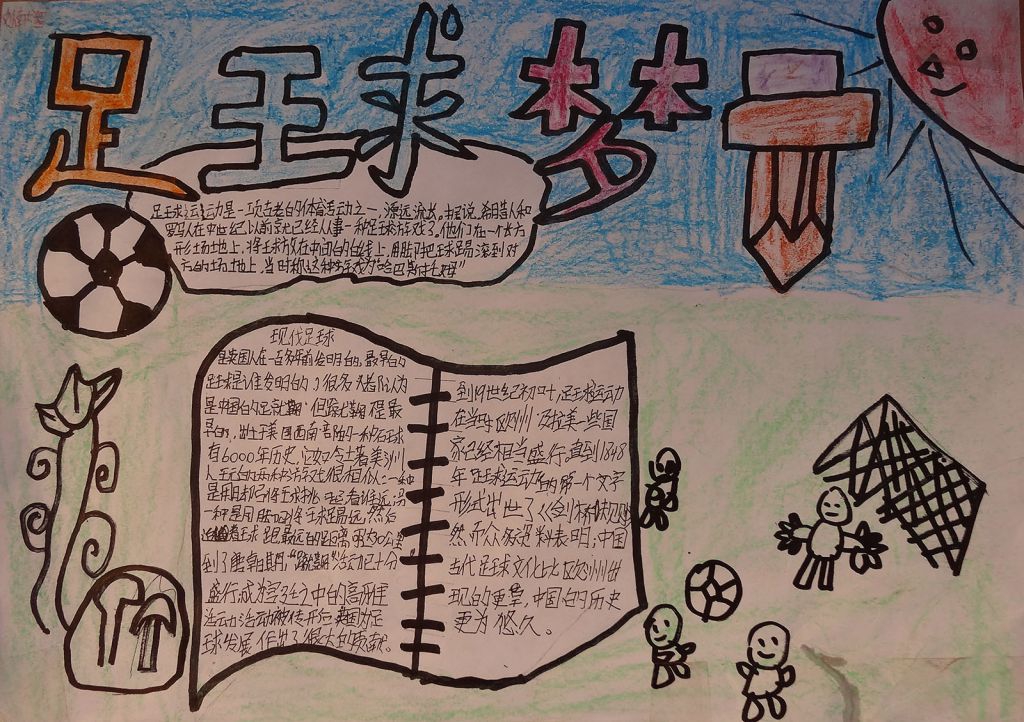 足球梦
足球运动是一项古老的体育活动之一,源远流长。据说,希腊人和
罗马人在中世纪以前就已经从事一种足球游戏了。他们在一个长方
形场地上,将球放在中间的白线上,用脚把球踢滚到对
方的场地上,当时称这种游戏为“哈巴斯托姆”
现代足球
是英国人在一百多年前发明的。最早的
足球是谁发明的?很多人都认为
是中国的足就鞠,但蹴鞠不是最
早的,出于美国西南部的一种石球
有6000年历史,它如今土著美洲
人玩的两种游戏很相似:一种
是用
一种是用脚将球踢远,然后
球
到了唐朝期,“蹴鞠”活动已十分
盛行,成为
活动
球发展作出了很大的贡献。
到19世纪初叶,足球运动
在当时欧洲及拉美一些国
家已经相当盛行。直到1848
年,足球运动的第一个文字
形式出世了《剑桥规则》
然而众多资料表明,中国
古代足球文化比欧洲出
现的更早,中国的历史
更为悠久。